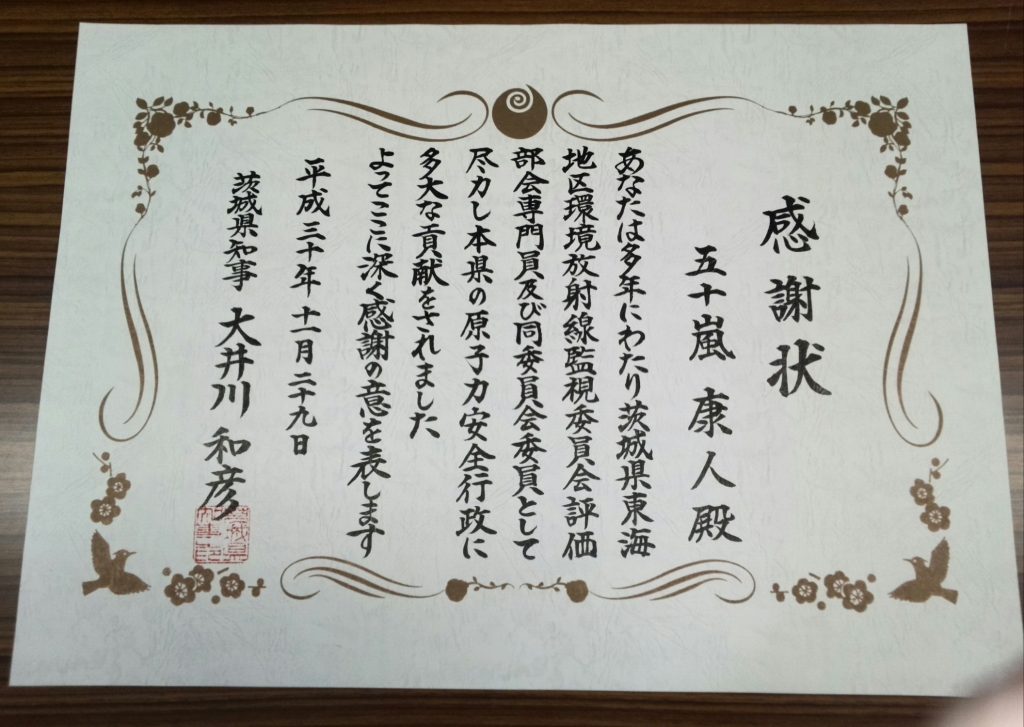 感謝状
五十嵐 康人 殿
あなたは多年にわたり茨城県東海
地区環境放射線監視委員会評価
部会専門員及び同委員会委員として
尽力し本県の原子力安全行政に
多大な貢献をされました
よってここに深く感謝の意を表します
平成三十年十一月二十九日
茨城県知事 大井川 和彦